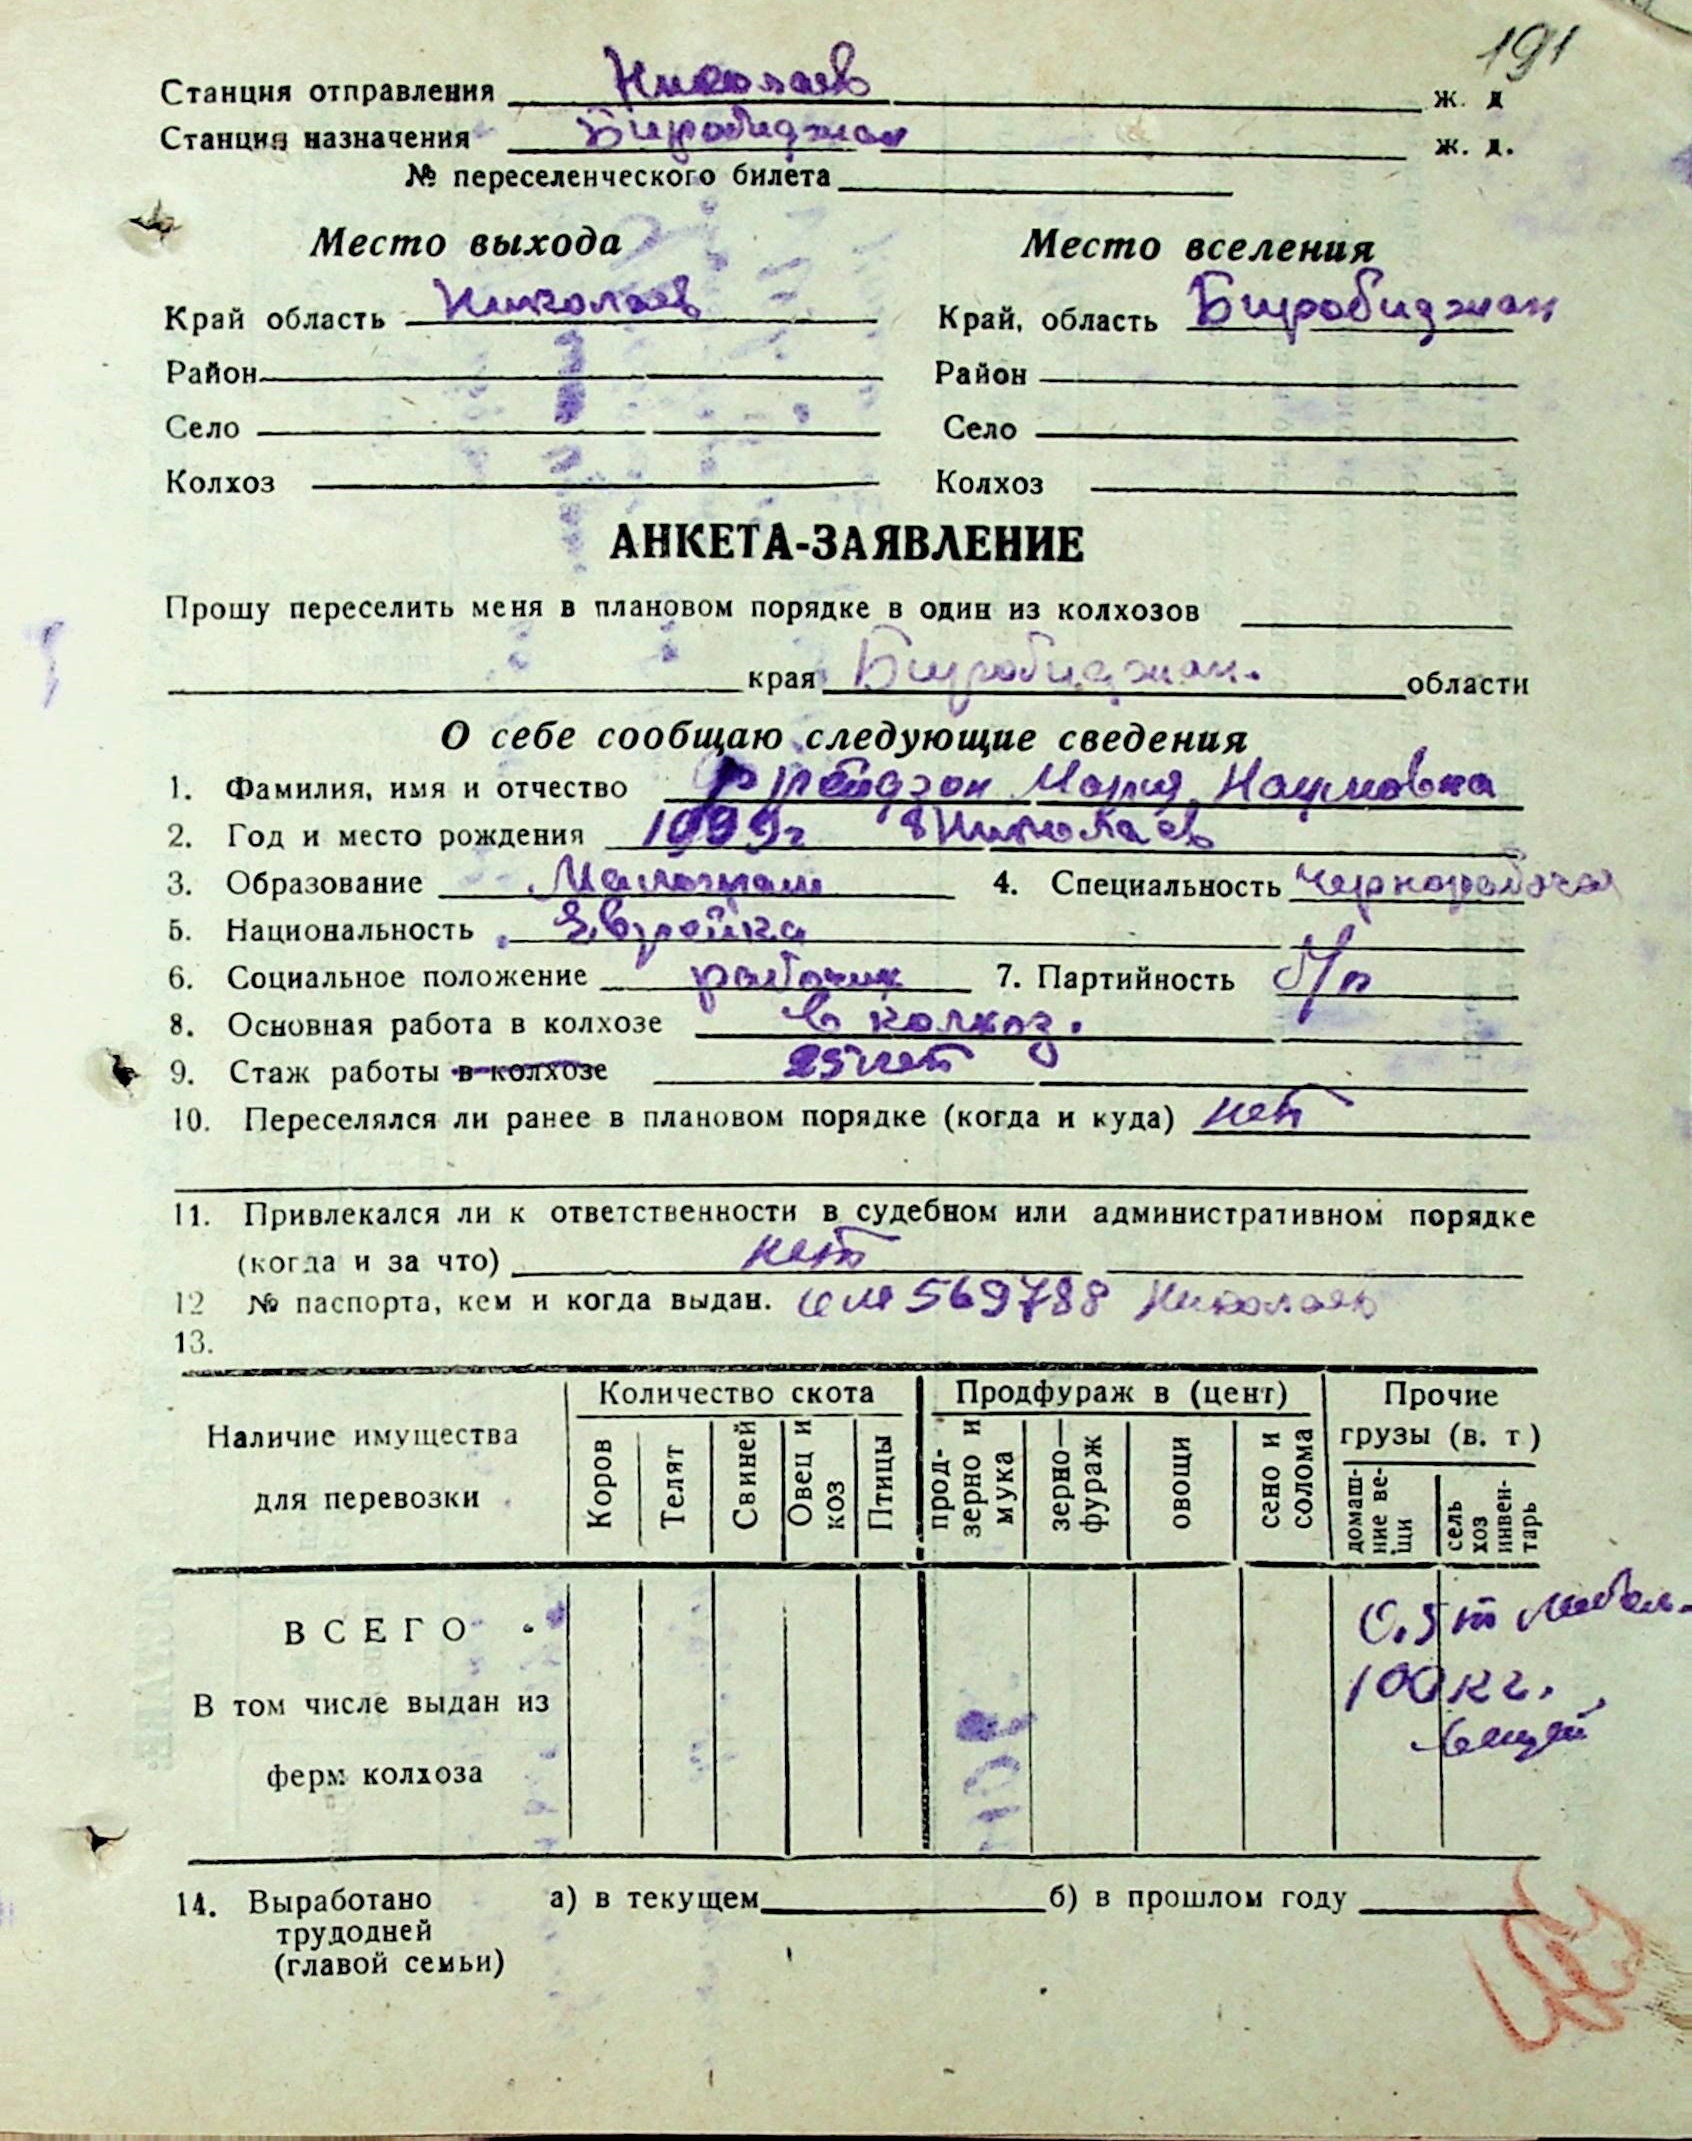 191
Станция отправления Николаев ж. д
Станция назначения Биробиджан ж. д.
№ переселенческого билета
Место выхода Место вселения
Край область Николаев Край, область Биробиджан
Район Район
Село Село
Колхоз Колхоз
АНКЕТА-ЗАЯВЛЕНИЕ
Прошу переселить меня в плановом порядке в один из колхозов
края Биробиджан. области
О себе сообщаю следующие сведения
1. Фамилия, имя и отчество Фрейдзон Мария Наумовна
2. Год и место рождения Николаев
3. Образование Малограм 4. Специальность Чернорабочая
5. Национальность Еврейка
6. Социальное положение рабочик 7. Партийность б/п
8. Основная работа в колхозе в колхоз.
9. Стаж работы в колхозе 25 лет
10. Переселялся ли ранее в плановом порядке (когда и куда) нет
11. Привлекался ли к ответственности в судебном или административном порядке
(когда и за что) нет
12 № паспорта, кем и когда выдан. 569788 Николаев
13.
Наличие имущества для перевозки
Количество скота
Продфураж в (цент)
Прочие грузы (в. т)
Коров
Телят
Свиней
Овец и коз
Птицы
прод-зерно и мука
зерно—фураж
овощи
сено и солома
домаш-ние ве-щи
сель хоз инвен-тарь
ВСЕГО 0.5 т мебел-
В том числе выдан из 100 кг.
вещей
ферм колхоза
14. Выработано а) в текущем б) в прошлом году
трудодней
(главой семьи)